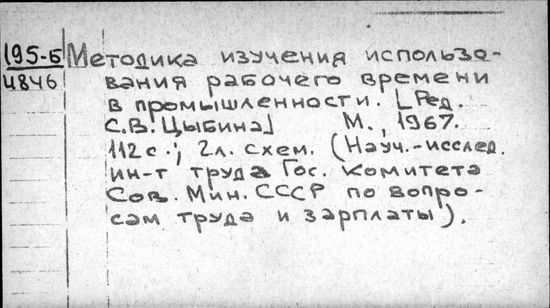 195-Б Методика изучения использо-
4846 вания рабочего времени
в промышленности. [Ред.
С.В. Цыбина] М., 1967.
112 с.; 2 л. схем. (Науч.-исслед.
ин-т труда Гос. комитета
Сов. Мин. СССР по вопро-
сам труда и зарплаты).